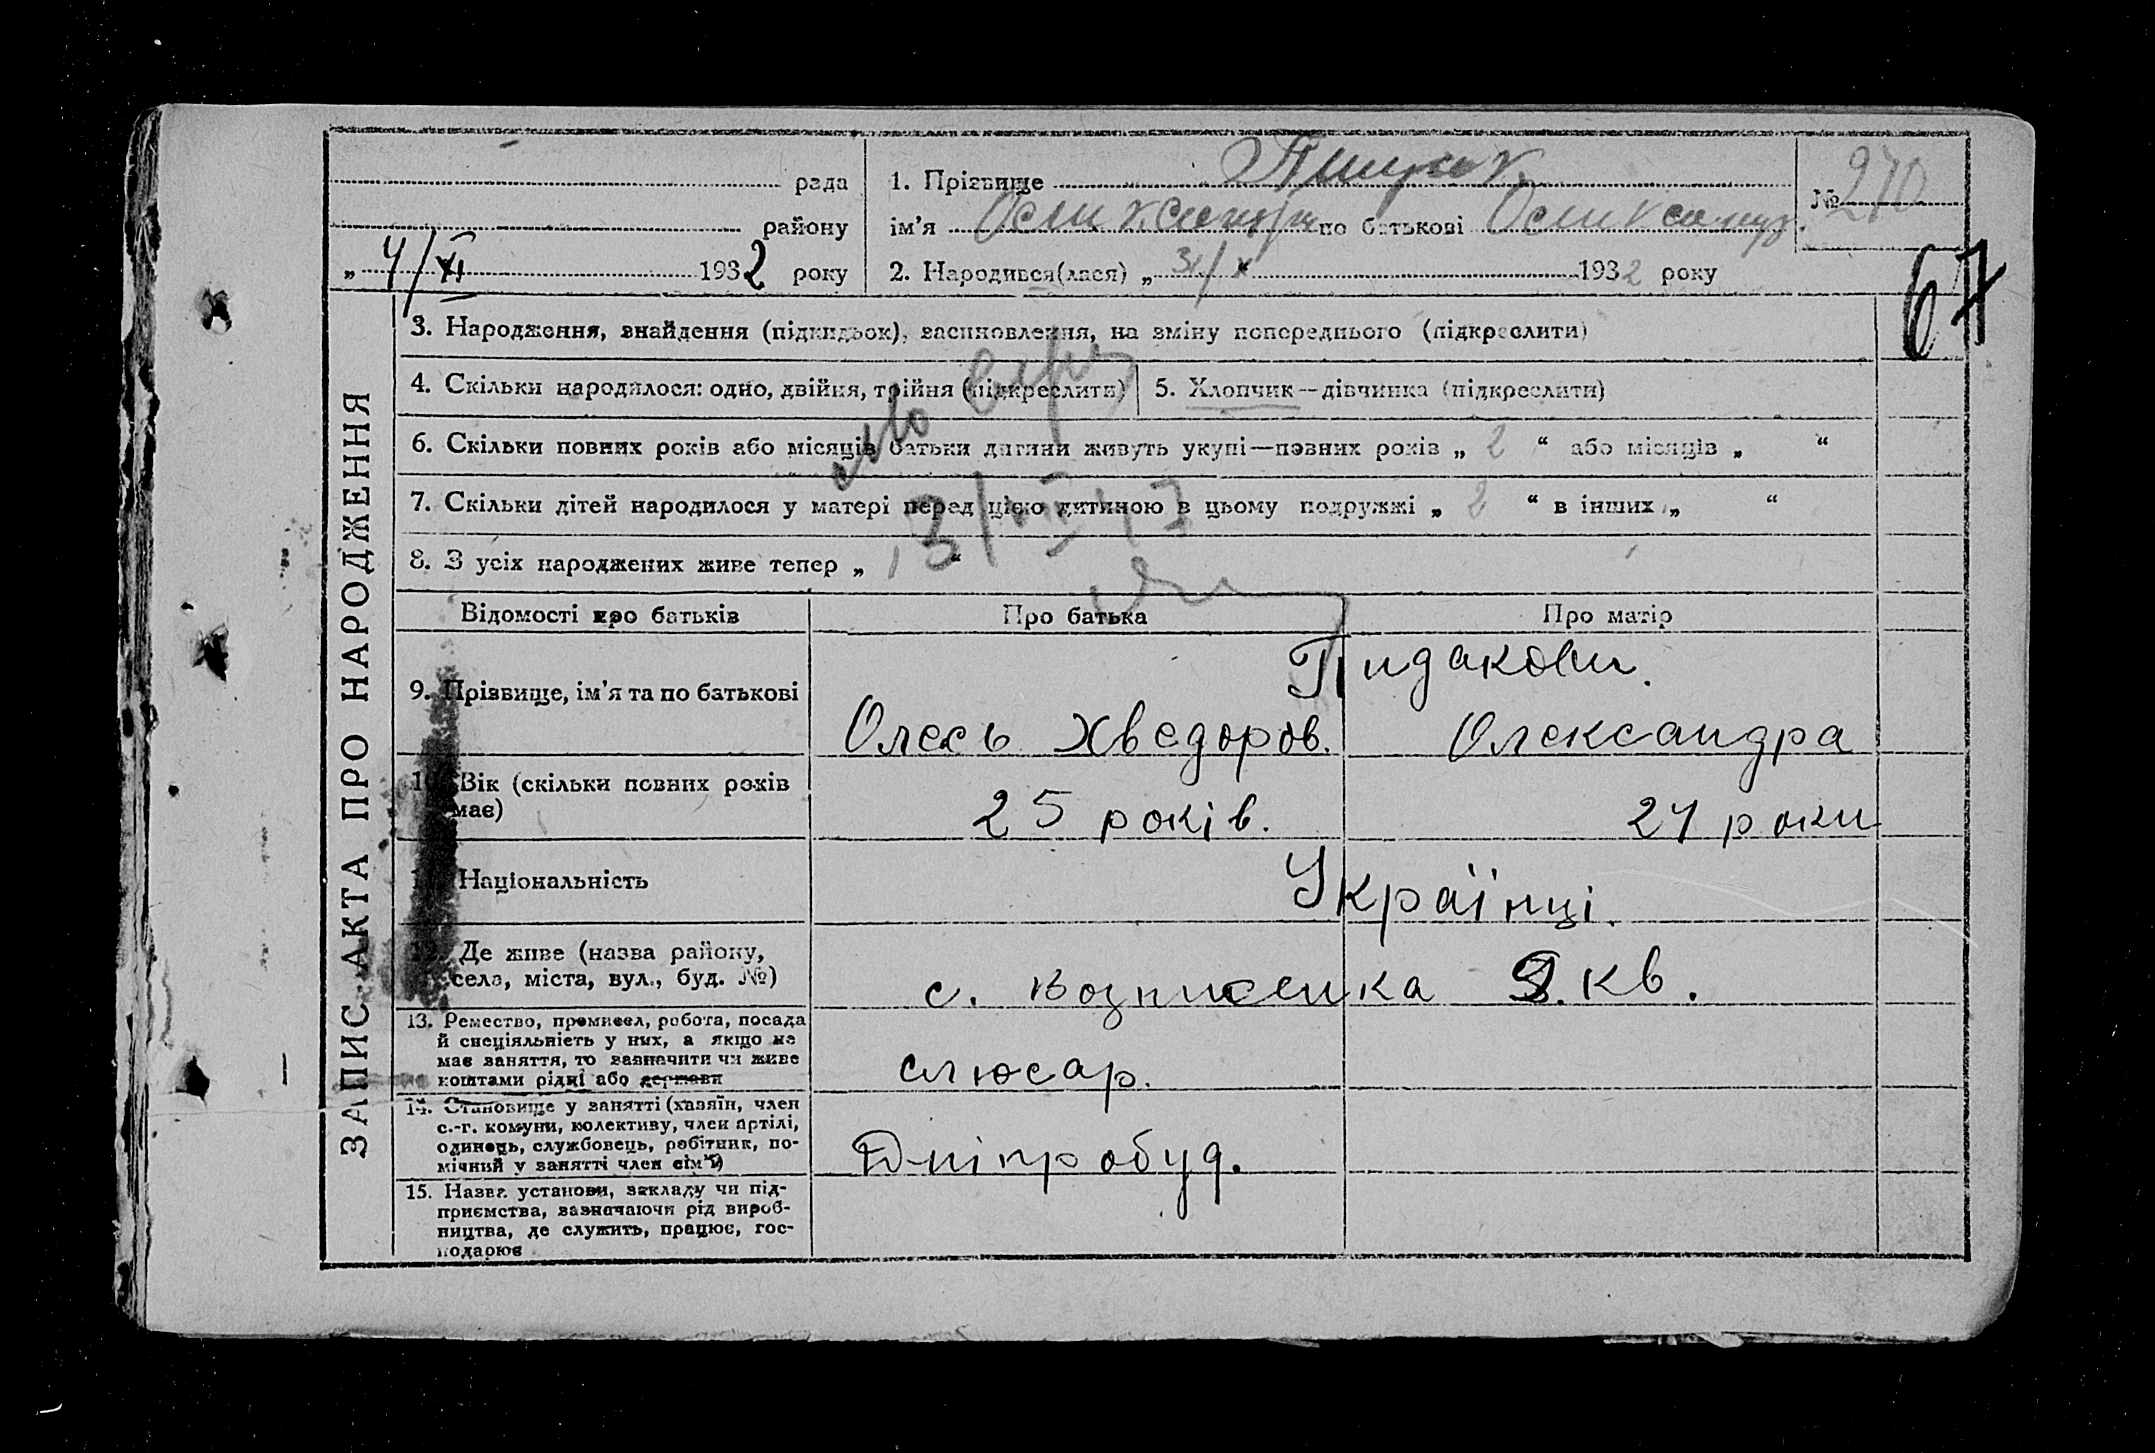 рада
району
„ 4/XI 1932 року
1. Прізвище
ім'я Олександр по батькові Олександр.
№ 270
2. Народився(лася) „ 31/X 1932 року
67
ЗАПИС АКТА ПРО НАРОДЖЕННЯ
3. Народження, знайдення (підкидьок), засиновлення, на зміну попереднього (підкреслити)
4. Скільки народилося: одно, двійня, трійня (підкреслити)
5. Хлопчик—дівчинка (підкреслити)
6. Скільки повних років або місяців батьки дитини живуть укупі—повних років „ 2 “ або місяців „ “
7. Скільки дітей народилося у матері перед цією дитиною в цьому подружжі „ 2 “ в інших „ “
8. З усіх народжених живе тепер „ “
Відомості про батьків
Про батька
Про матір
9. Прізвище, ім'я та по батькові
Пидакови.
Олесь Хведоров.
Олександра
10. Вік (скільки повних років
має)
25 років.
24 роки
Національність
Українці.
Де живе (назва району,
села, міста, вул., буд. №)
с. Вознисенка кв.
13. Ремество, промисел, робота, посада
й спеціяльність у них, а якщо не
має заняття, то зазначити чи живе
коштами рідні або держави
слюсар.
14. Становище у занятті (хазяїн, член
с.-г. комуни, колективу, член артілі,
одинець, службовець, робітник, по-
мічний у занятті член сім'ї)
Дніпробуд.
15. Назва установи, закладу чи під-
приємства, зазначаючи рід вироб-
ництва, де служить, працює, гос-
подарює